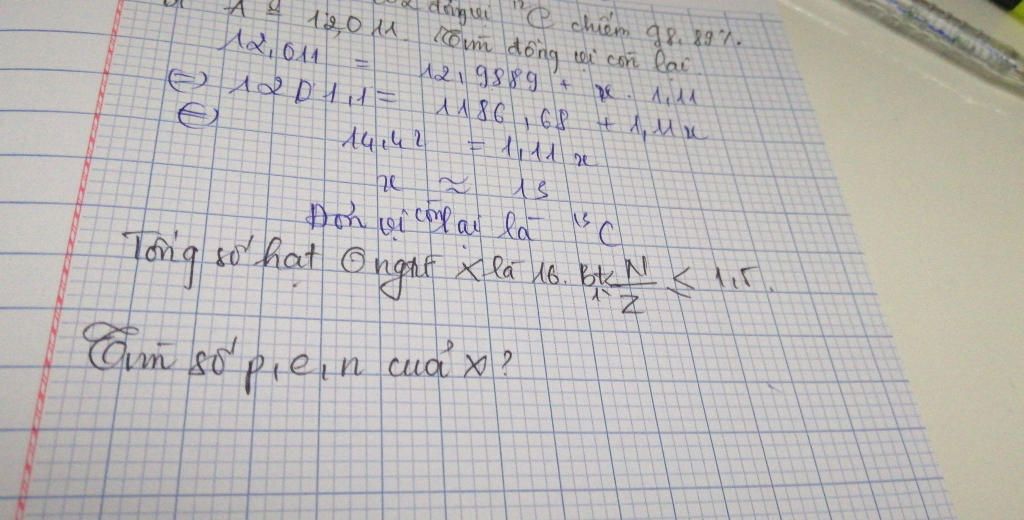 A = 12,011. đồng vị ¹²C chiếm 98,89%.
Tìm đồng vị còn lại.
12,011 = 12,9889 + x. 1,11
⇔ 1201,1 = 1186,68 + 1,11x
⇔ 14,42 = 1,11 x
x ≈ 13
Đồn vị còn lại là ¹³C
Tổng số hạt ở ngtử X là 16. Bk 1 ≤ N/Z ≤ 1,5.
Tìm số p, e, n của X?